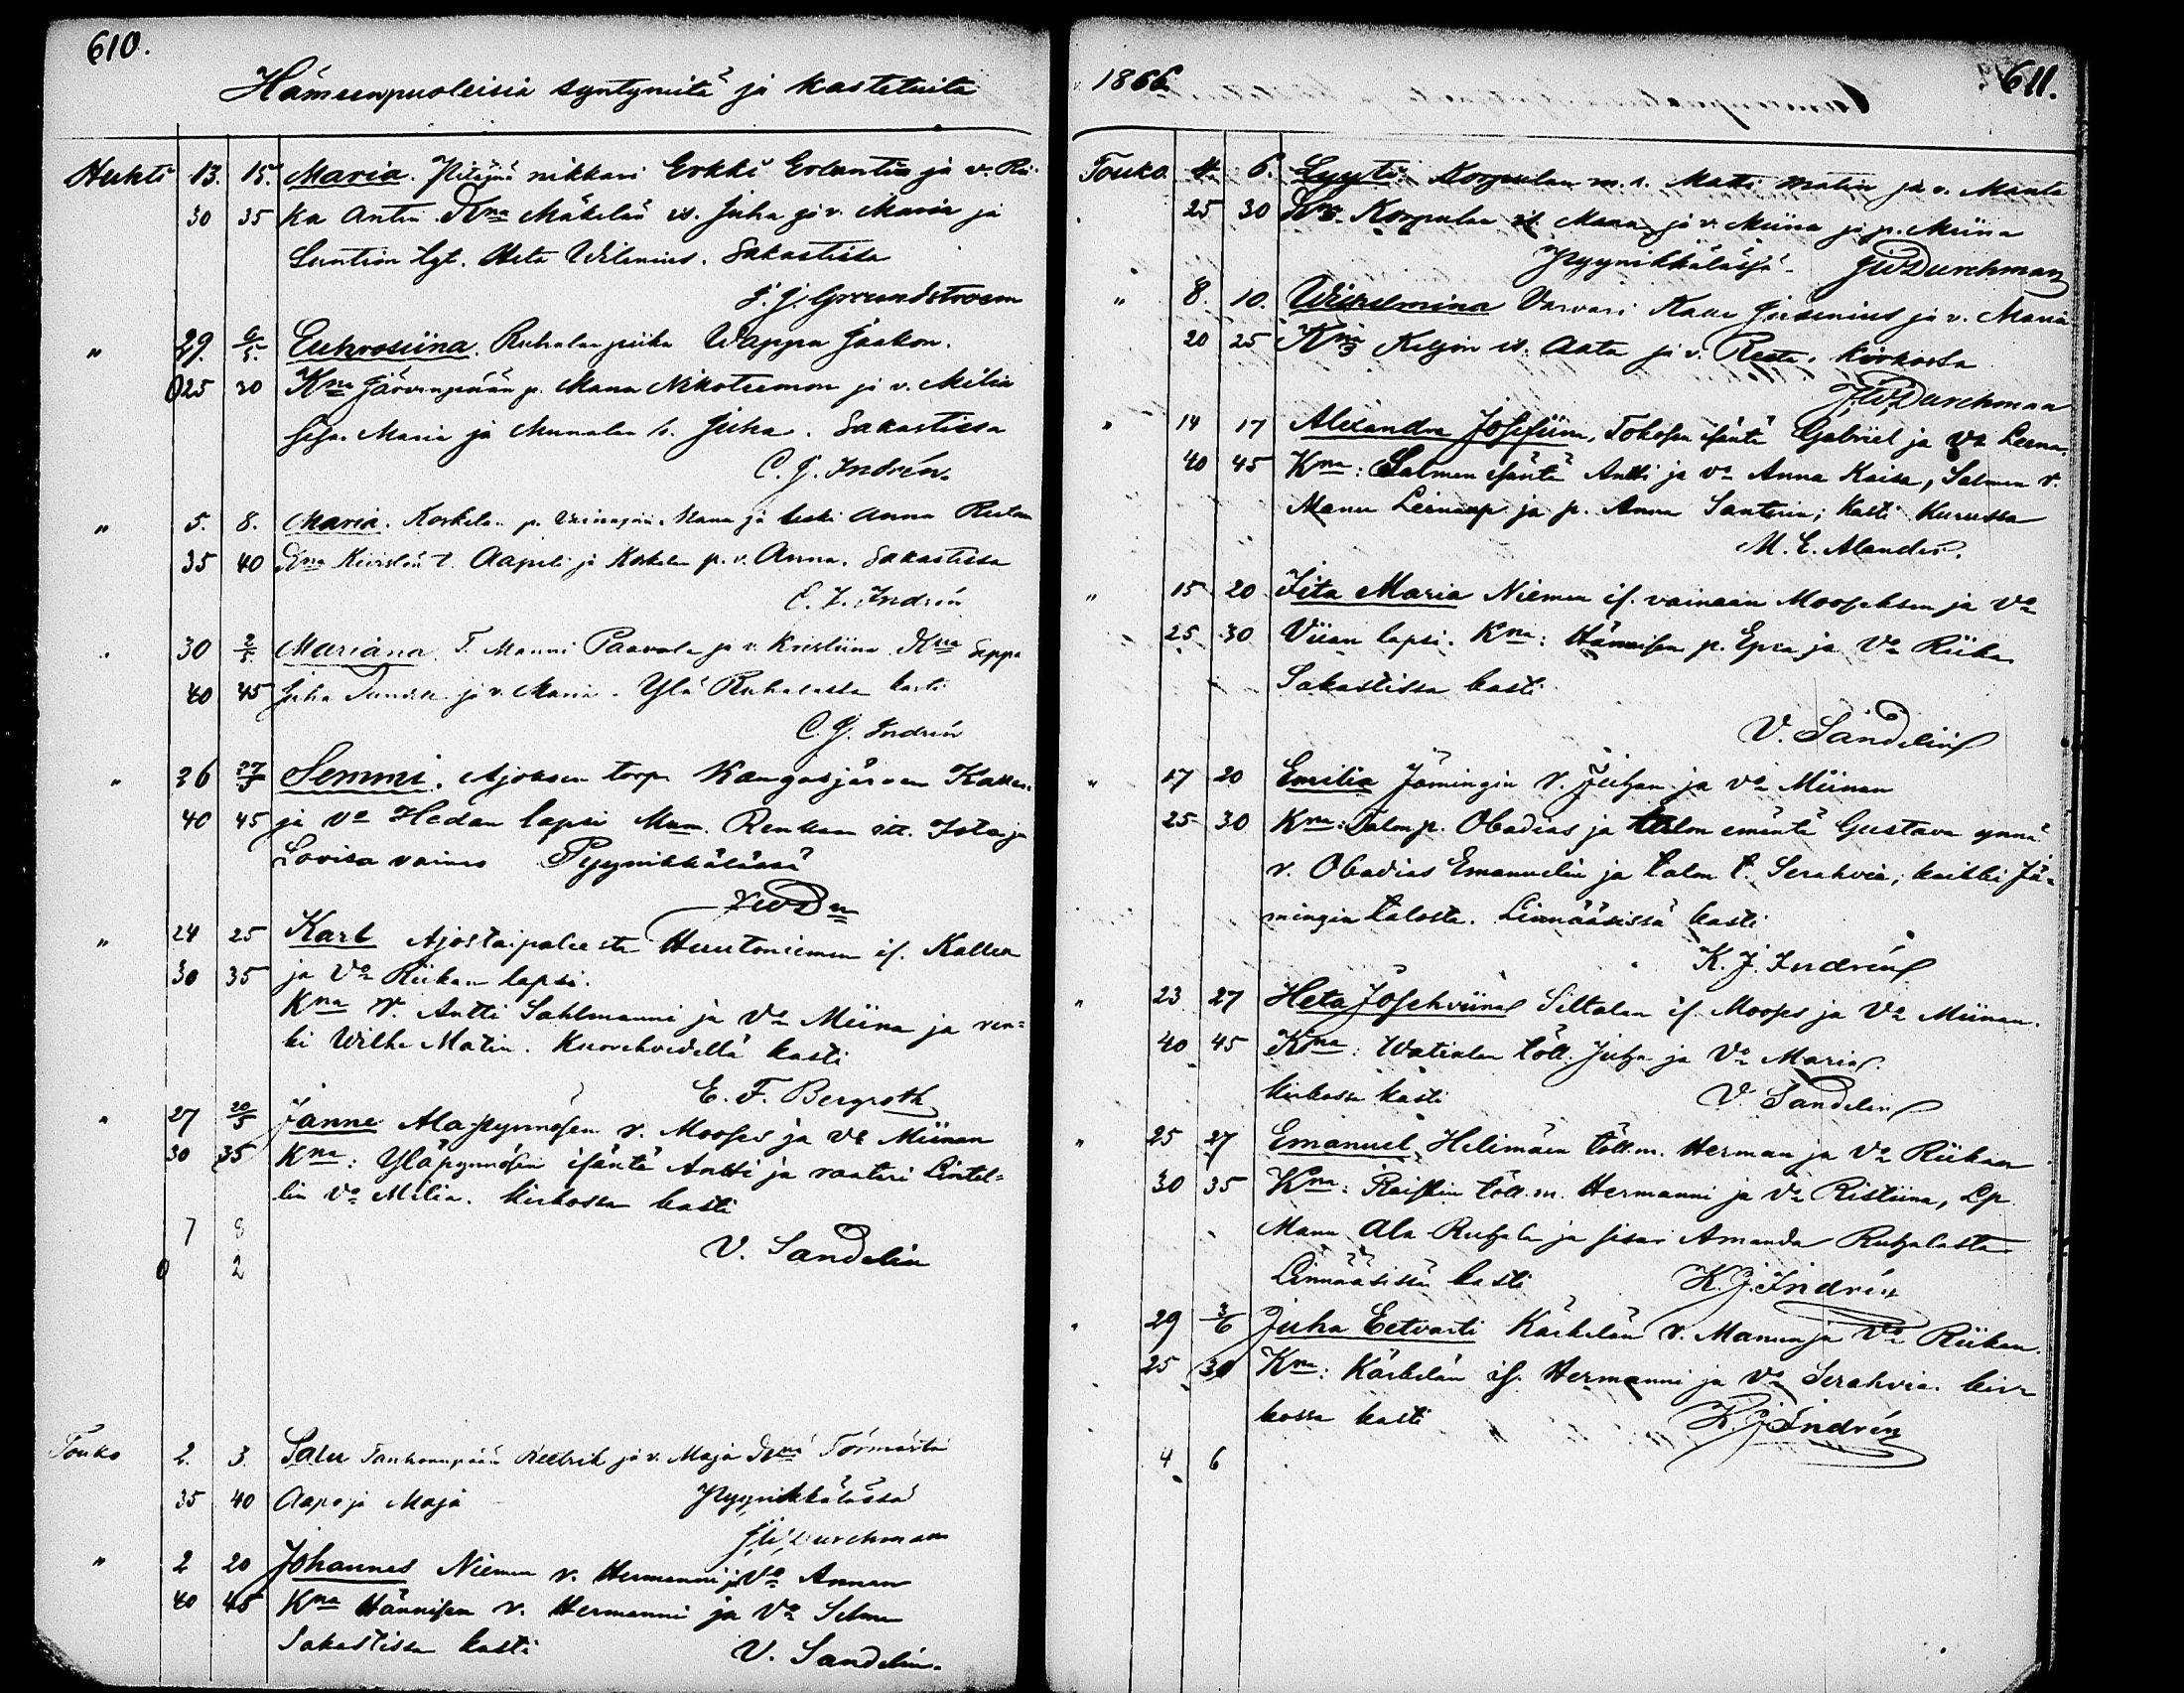 610.
Hämeenpuoleisia syntyneitä ja kastetuita
Huhti 13. 15. Maria. Pitäjän nikkari Erkki Erlantin ja v. Rii-
30 35 ka Antin. Kna Mäkelän is. Juha ja v. Maria ja
Luntion tyt. Heta Wilenius. Sakastissa
J. J. Grrundstroem
" 29. 6/5. Euhrosiina. Ruhalan piika Wappu Jaakon.
25 30 Kna Järvenpään p. Manu Nikoteemon ja v. Milia
Maria ja Munalan r. Juha. Sakastissa
C. J. Indrén.
" 5. 8. Maria. Korkelan p. Manu ja leski Anna
35 40 Kna t. Aapeli ja Korkelan p. v. Anna. Sakastissa
C. J. Indrén
" 30 2/5. Mariana. T. Manni Paavola ja v. Kristiina Kna Seppä
40 45 Juha ja v. Maria. Ylä Ruhalassa kasti
C. J. Indrén
" 26 27/5 Semmi. Ajoksen torp. Kangasjärven Kallen
40 45 ja vo Hedan lapsi Mum. Renkun itt. Iita ja
Lovisa vaimo Pyynikkälässä
JWDn
" 24 25 Karl Ajostaipaleesta Huutoniemen if. Kallen
30 35 ja Vo Riikan lapsi.
Kna V. Antti Sahlmanni ja Vo Miina ja ren-
ki Wilhe Matin. Kuorehvedellä kasti
E. F. Bergroth
" 27 20/5 Janne Ala-pynnösen v. Mooses ja Vo Miinan
30 35 Kna: Yläpynnösen isäntä Antti ja raatari Lintel-
lin Vo Milia. kirkossa kasti
7 8
V. Sandelin
0 2
Touko 2. 3. Salu Tanhuanpään Reetrik ja v. Maja Kna Törmästä
35 40 Aapo ja Maja Pyynikkälässä
J.W. Durchman
" 2 20 Johannes Niemen v. Hermanni ja Vo Annan
40 45 Kna Hännisen v. Hermanni ja Vo Selma
Sakastissa kasti V. Sandelin.
1866. 611.
Touko. 4. 6. Lyyti. Korpulan m. r. Matti Matin ja v. Manta
25 30 Kna. Korpulan is. Manu ja v. Miina ja p. Miina
Pyynikkälässä. JWDurchman
" 8. 10. Wilhelmina Varvari Kalle Jusenius ja v. Maria
20 25 Kna Keljon is. Aata ja v. Reeta. Kirkossa
J.W. Durchman
" 14 17 Alexandra Josefiina, Tokosen isäntä Gabriel ja Vo Leena.
40 45 Kna: Salmen isäntä Antti ja vo Anna Kaisa, Salmen v.
Manu ja p. Anna Santerin; kasti Kurussa
M. E. Alander.
" 15 20 Iita Maria Niemen if. vainaan Mooseksen ja Vo
25 30 Viian lapsi. Kna: Hännisen p. Epra ja Vo Riika
Sakastissa kasti
V. Sandelin
" 17 20 Emilia Jämingin V. Juhan ja vo Miinan
25 30 Kna: Talon p. Obadias ja talon emäntä Gustava ynnä
v. Obadias Emanuelin ja talon t. Serahvia, kaikki Jä-
mingin talosta. Linnääsissä kasti
K. J. Indrén
" 23 27 Heta Josehviina Siltalan if. Mooses ja Vo Miinan.
40 45 Kna: Watialan töll. Juha ja Vo Maria.
kirkossa kasti V. Sandelin
" 25 27 Emanuel. Helimäen töll.m. Herman ja Vo Riikan
30 35 Kna: töll.m. Hermanni ja Vo Ristiina, Lp.
Manu Ala Ruhala ja sisar Amanda Ruhalasta
Linnääsissä kasti K. J. Indrén
" 29 3/6 Juha Eetvarti Kärkelän v. Manun ja Vo Riikan.
25 30 Kna: Kärkelän if. Hermanni ja Vo Serahvia. kir-
kossa kasti K. J. Indrén
4 6